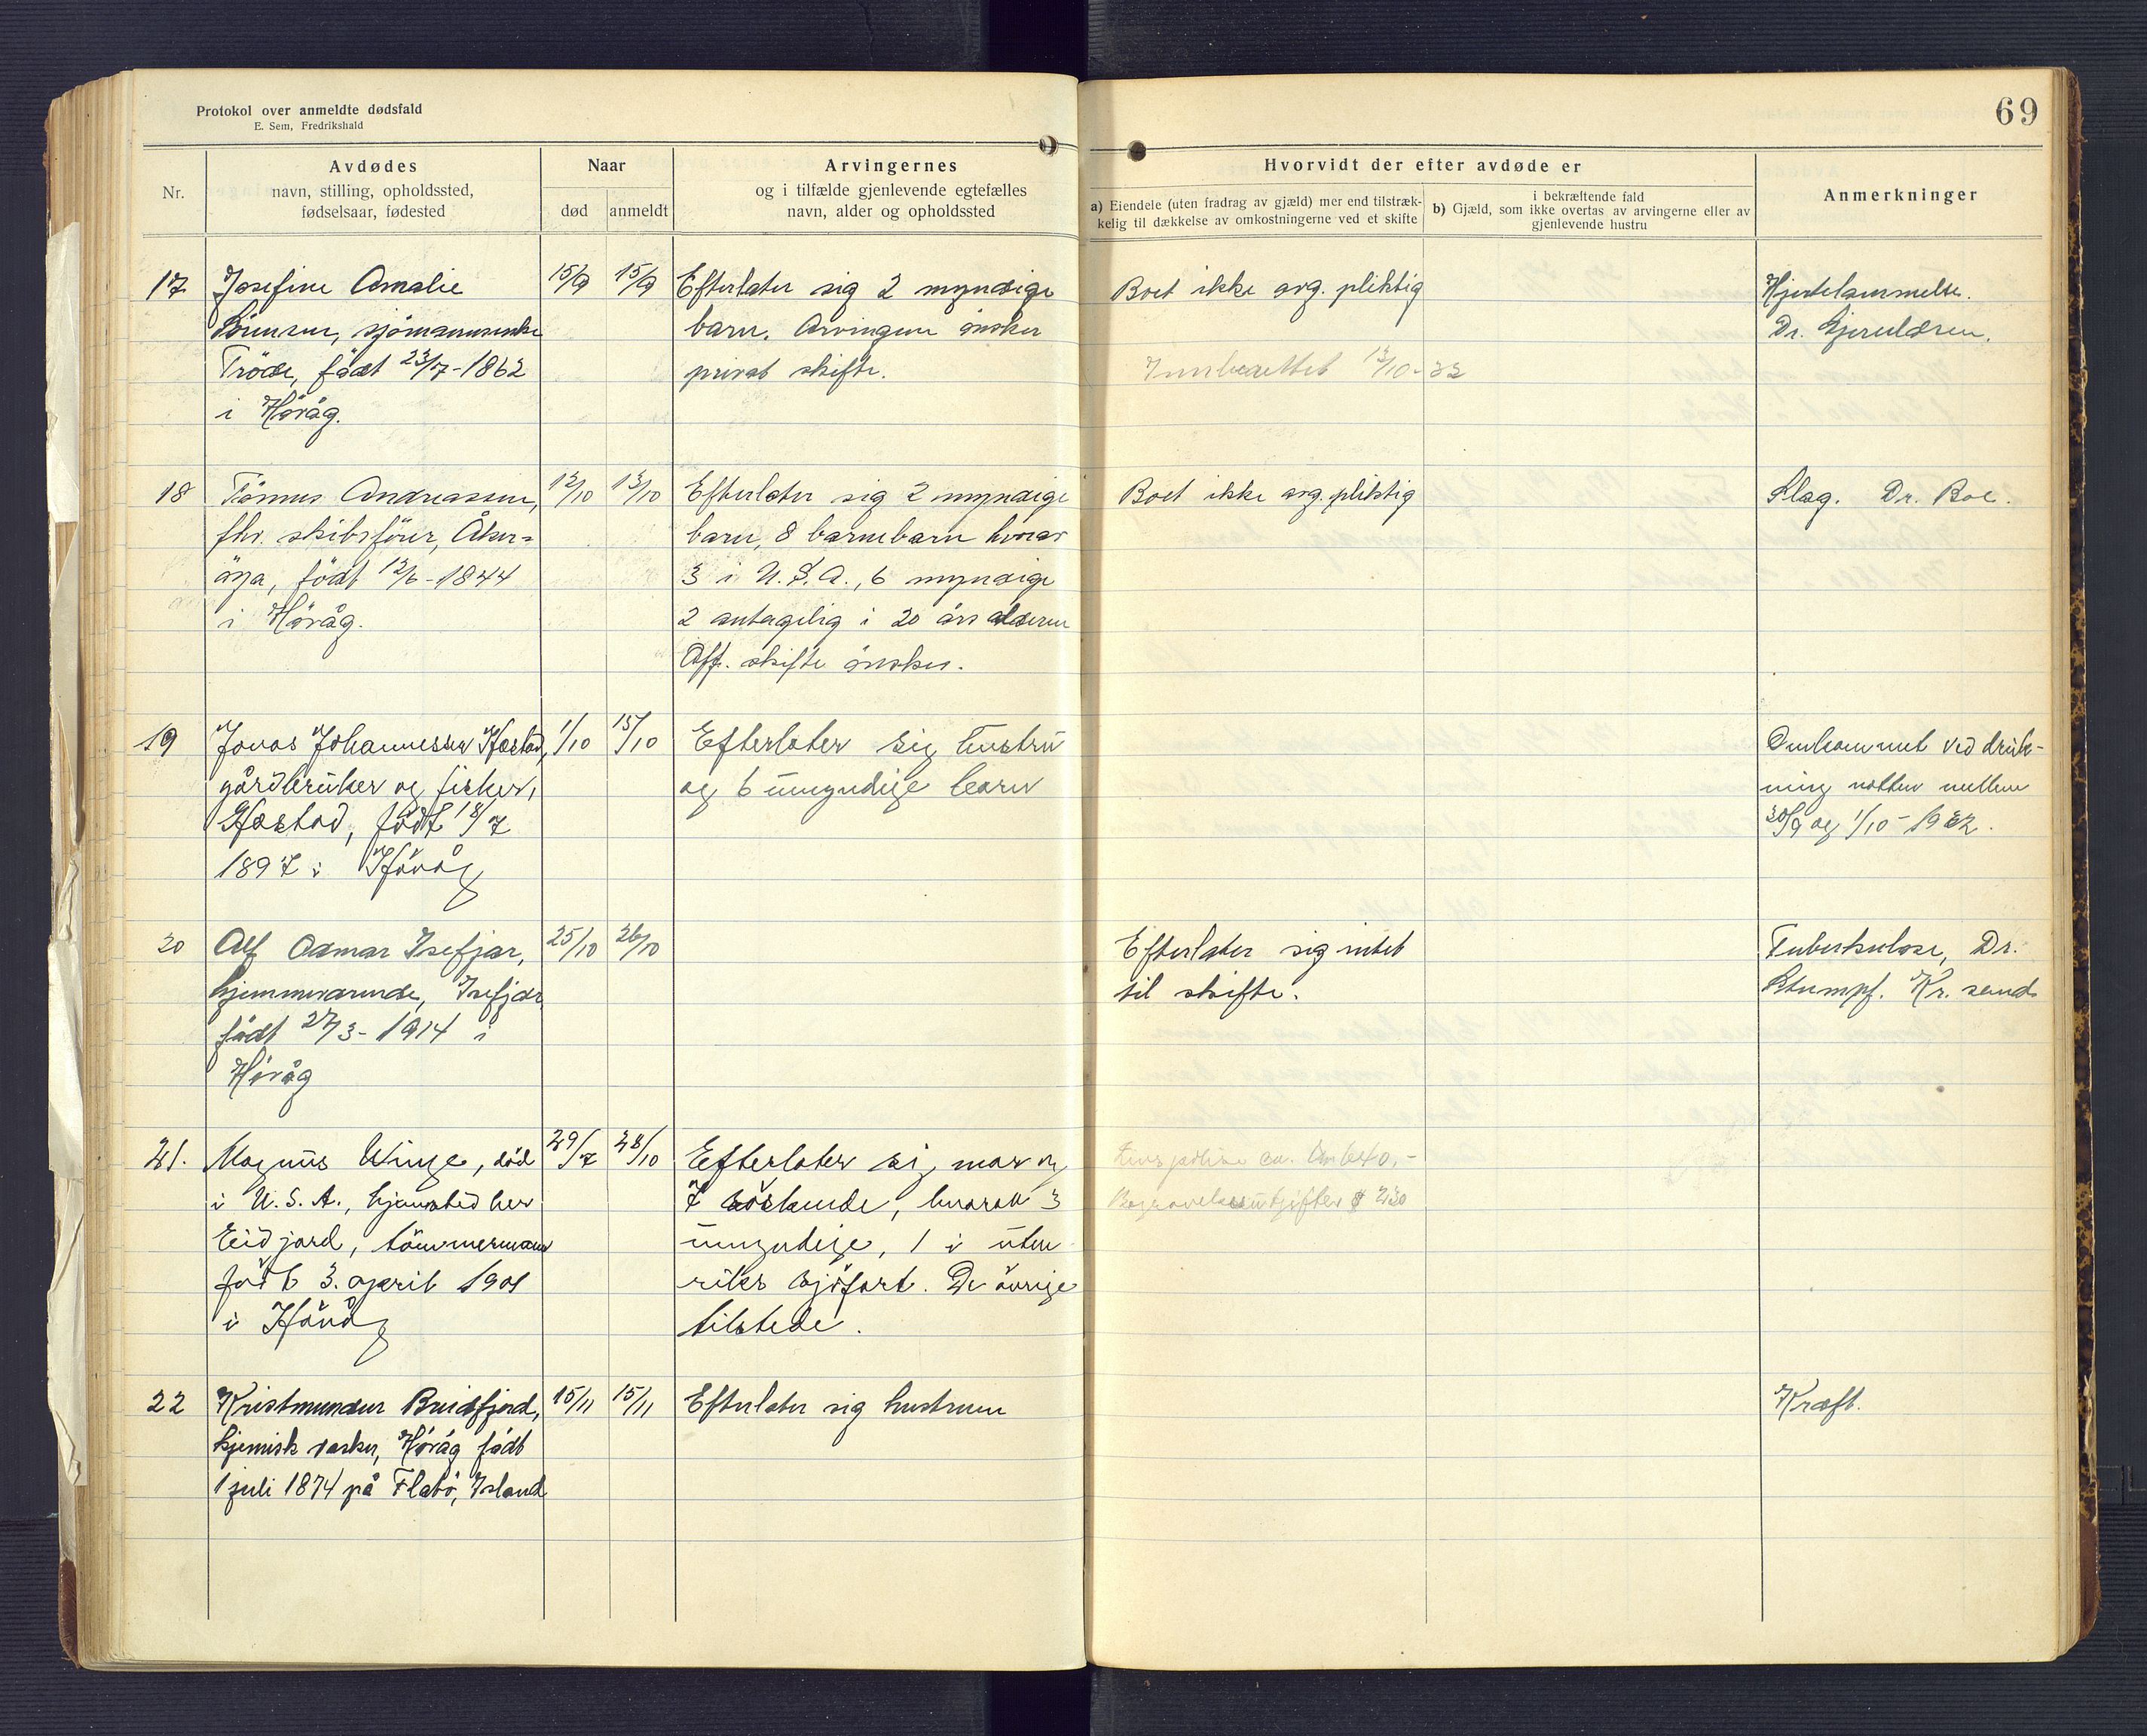 Protokol over anmeldte dødsfald
E. Sem, Fredrikshald
69
Nr.
Avdødes
navn, stilling, opholdssted,
fødselsaar, fødested
Naar
død
anmeldt
Arvingernes
og i tilfælde gjenlevende egtefælles
navn, alder og opholdssted
Hvorvidt der efter avdøde er
a) Eiendele (uten fradrag av gjæld) mer end tilstræk-
kelig til dækkelse av omkostningerne ved et skifte
i bekræftende fald
b) Gjæld, som ikke overtas av arvingerne eller av
gjenlevende hustru
Anmerkninger
17
Josefine Amalie
sjömannsenke
Tröde, födt 23/7-1862
i Höväg.
15/9
15/9
Efterlater sig 2 myndige
barn. Arvingene önsker
privat skifte.
Boet ikke arg. pliktig
Innberettet 13/10-32
Hjertelammelse.
Dr. Gjeruldsen.
18
Tönnes Andreassen,
fhv. skibsfører, Åker=
öya, födt 12/6-1844
i Höväg.
12/10
13/10
Efterlater sig 2 myndige
barn, 8 barnebarn hvorav
3 i U.S.A., 6 myndige
2 antagelig i 20 års alderen
Off. skifte önskes.
Boet ikke arg. pliktig
Slag. Dr. Boe.
19
Jonas Johannessen Hæstad,
gårdbruker og fisker,
Hæstad, födt 18/7
1897 i Hövåg
1/10
15/10
Efterlater sig hustru
og 6 umyndige barn
Omkommet ved druk-
ning natten mellem
30/9 og 1/10-1932.
20
Alf Odmar Isefjær,
hjemmeværende, Isefjær
födt 27/3-1914 i
Hövåg
25/10
26/10
Efterlater sig intet
til skifte.
Tuberkulose, Dr.
Stumpf. Kr. sand
21.
Magnus Winge, död
i U.S.A., hjemsted her
Eidjord, tömmermann
födt 3. april 1901
i Hövåg
29/7
28/10
Efterlater sig mor og
7 söskende, hvorav 3
umyndige, 1 i uten
riks sjöfart. De övrige
tilstede.
Livspolise ca.
Begravelsesutgifter $ 230
22
Kristmundur Breidfjord,
kjemisk vasker, Hövåg födt
1 juli 1874 på Flatö, Island
15/11
15/11
Efterlater sig hustruen
Kræft.